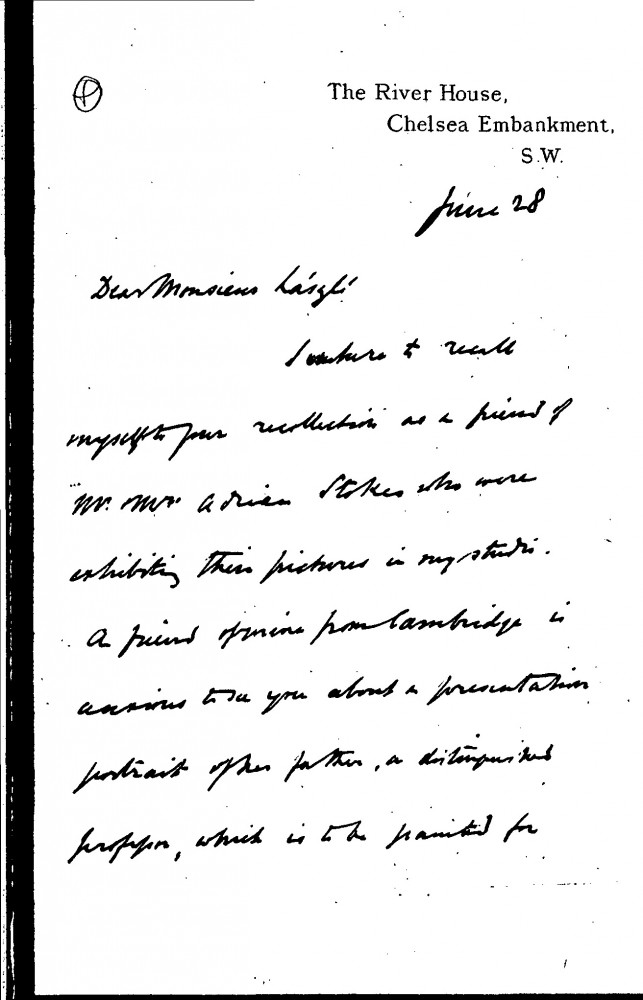 The River House,
Chelsea Embankment,
S.W.
June 28
Dear Monsieur László
I venture to recall
myself to your recollection as a friend of
Mr. & Mrs. Adrian Stokes who were
exhibiting their pictures in my studio.
A friend of mine from Cambridge is
anxious to see you about a presentation
portrait of her father, a distinguished
professor, which is to be painted for